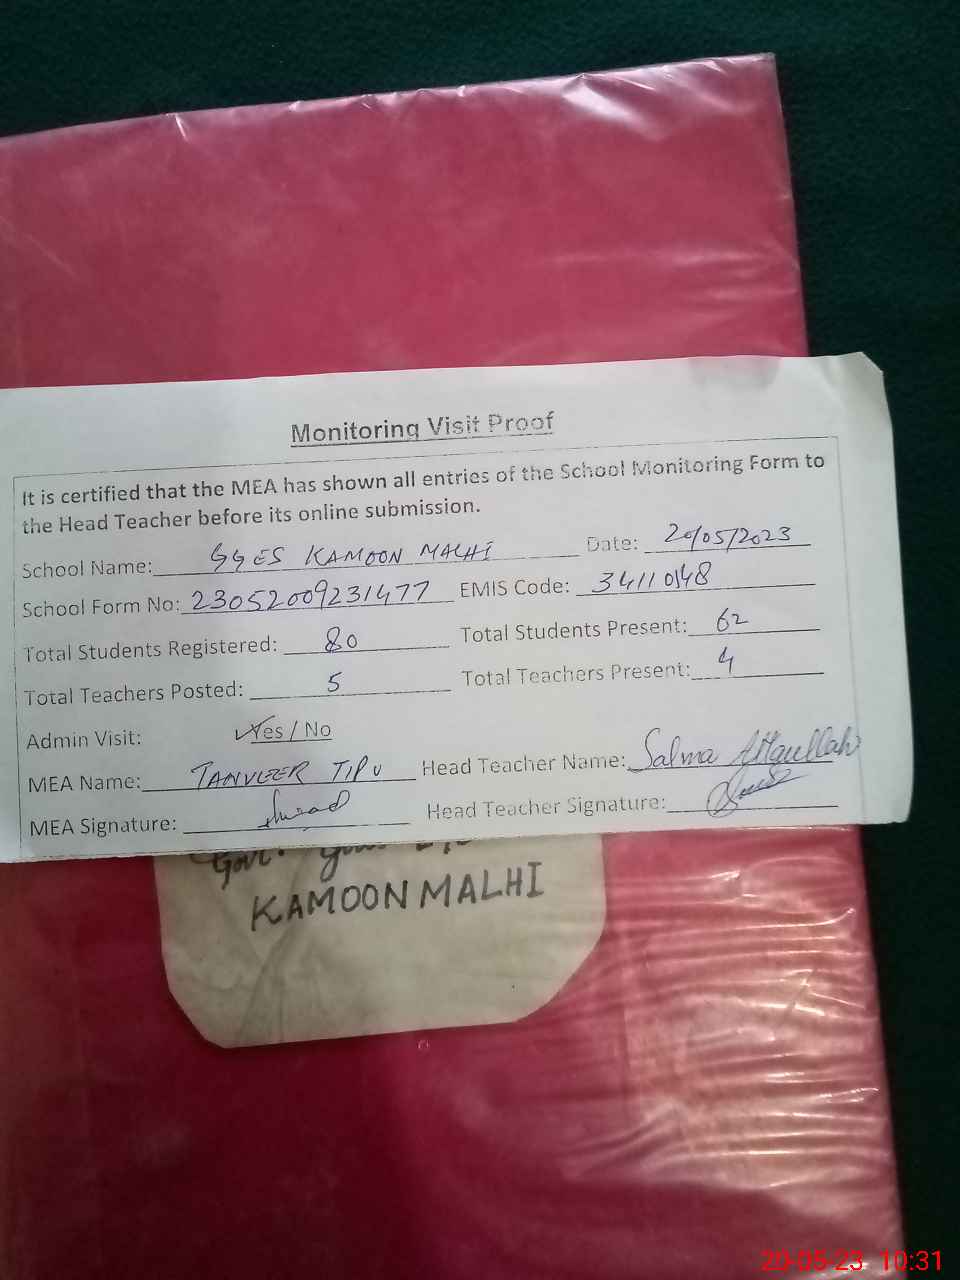 Monitoring Visit Proof
It is certified that the MEA has shown all entries of the School Monitoring Form to
the Head Teacher before its online submission.
School Name: GGES KAMOON MALHI Date: 20/05/2023
School Form No: 23052009231477 EMIS Code: 34110148
Total Students Registered: 80 Total Students Present: 62
Total Teachers Posted: 5 Total Teachers Present: 4
Admin Visit: Yes / No
MEA Name: TANVEER TIPU Head Teacher Name: Salma
MEA Signature: Head Teacher Signature:
Govt.
KAMOON MALHI
20-05-23 10:31